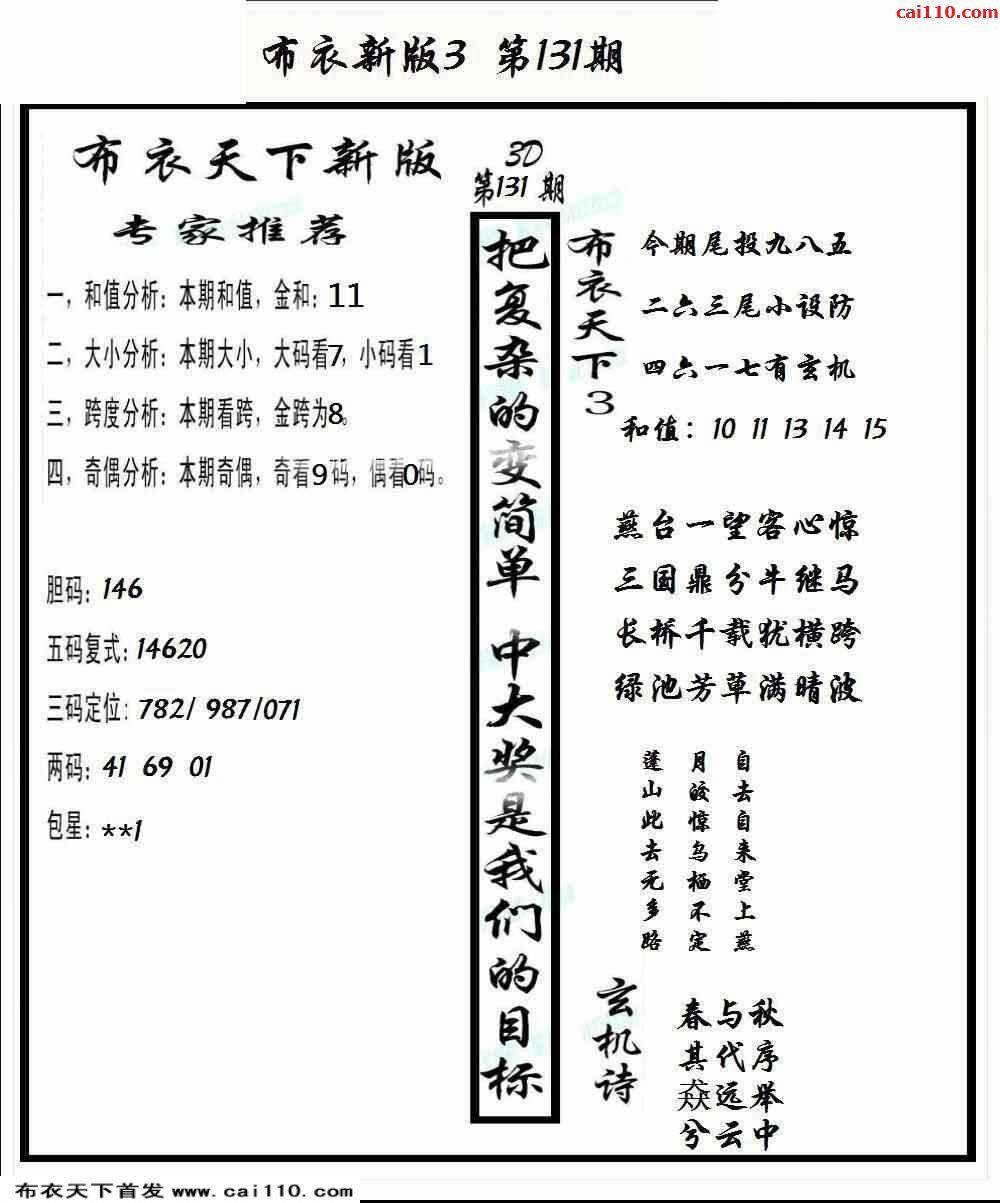 cai110.com
布衣新版3 第131期
布衣天下新版
专家推荐
一，和值分析：本期和值，金和：11
二，大小分析：本期大小，大码看7，小码看1
三，跨度分析：本期看跨，金跨为8。
四，奇偶分析：本期奇偶，奇看9码，偶看0码。
胆码：146
五码复式：14620
三码定位：782/ 987/071
两码：41 69 01
包星：**1
3D
第131期
把复杂的变简单 中大奖是我们的目标
布衣天下3
今期尾投九八五
二六三尾小设防
四六一七有玄机
和值：10 11 13 14 15
燕台一望客心惊
三国鼎分牛继马
长桥千载犹横跨
绿池芳草满晴波
自去自来堂上燕
月皎惊乌栖不定
蓬山此去无多路
玄机诗
春与秋
其代序
猋远举
兮云中
布衣天下首发 www.cai110.com